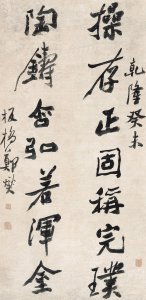 操存正固稱完璞
陶鑄含弘若渾金
乾隆癸未
板橋鄭燮